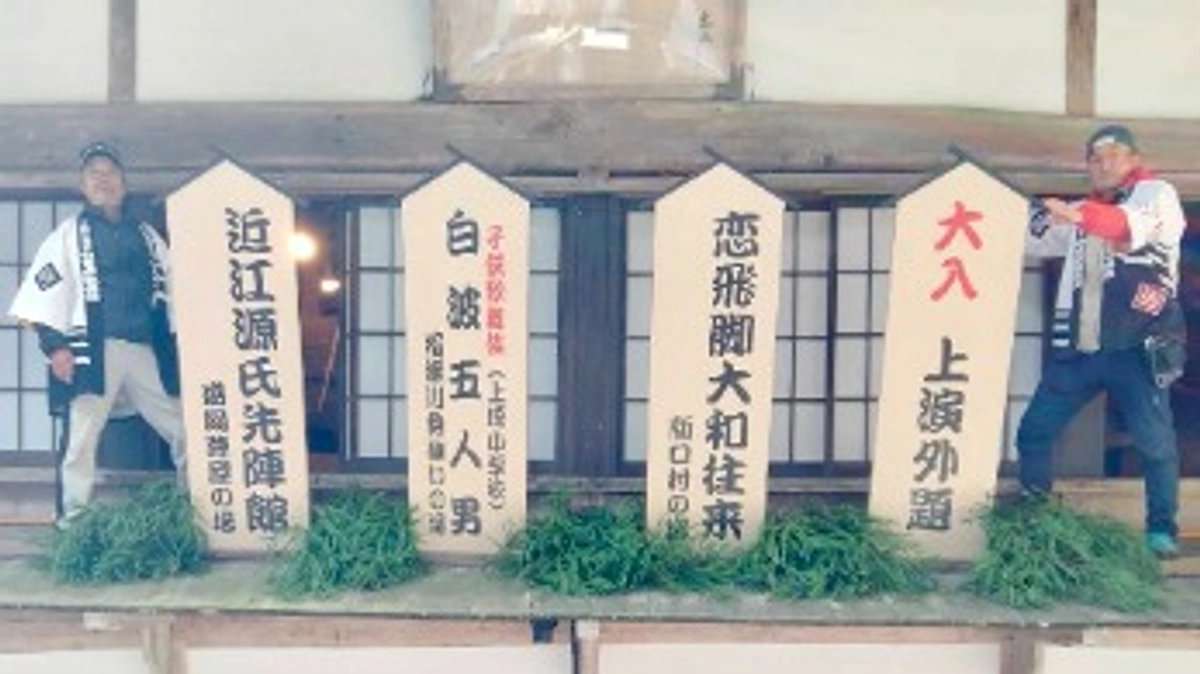 大入
上演外題
恋飛脚大和往来
新口村の場
子供歌舞伎
白波五人男
稲瀬川勢揃いの場
近江源氏先陣館
盛岡陣屋の場